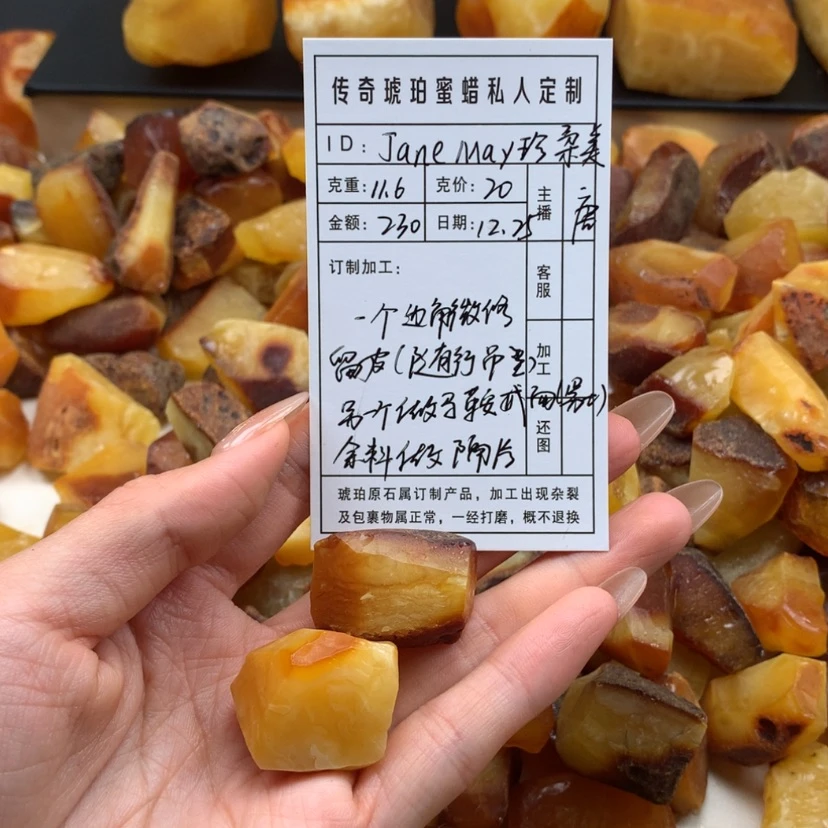 传奇琥珀蜜蜡私人定制
ID: Jane May珍
克重: 11.6 克价: 20 主播 唐
金额: 230 日期: 12.25
订制加工: 客服
一个边角微修
留皮 加工
另一个做 还图
余料做隔片
琥珀原石属订制产品，加工出现杂裂
及包裹物属正常，一经打磨，概不退换